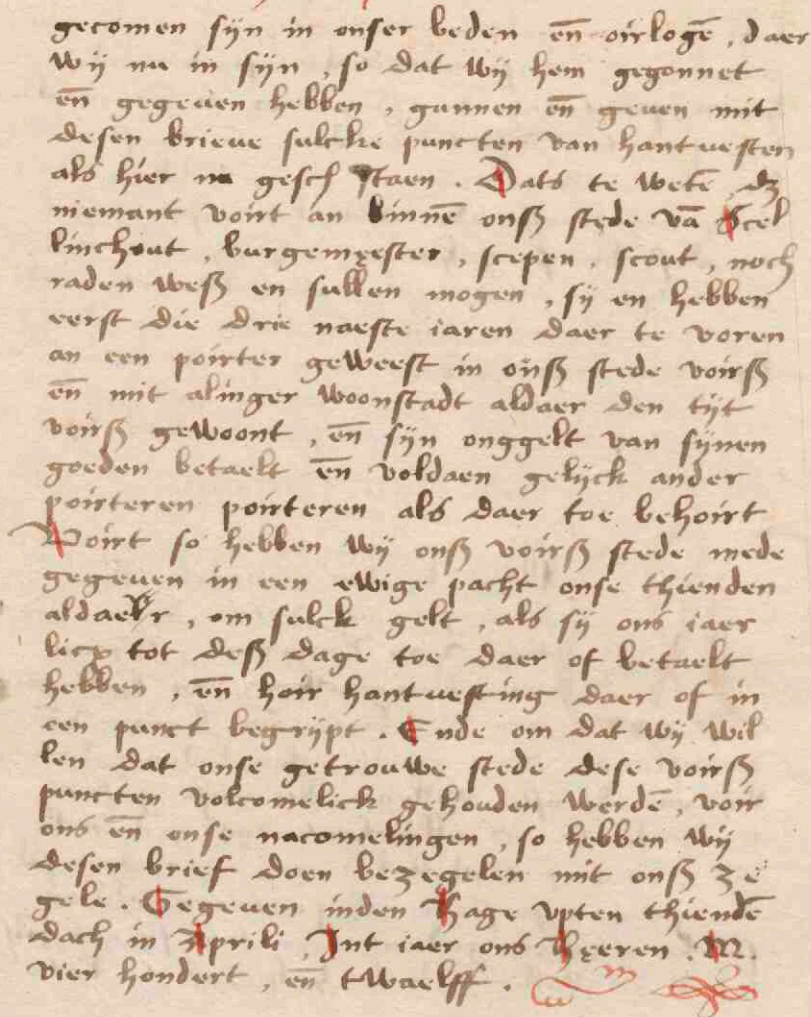 gecomen sijn in onser beden en̄ oirlogē, daer
wij nu in sijn, so dat wij hem gegonnet
en̄ gegeven hebben, gunnen en̄ geven mit
desen brieve sulcke puncten van hantvesten
als hier na gesch staen. Dats te wetē dz
niemant voirt an binnē onsß stede vā Scel
linchout, burgemeester, scepen, scout, noch
raden wesß en sullen mogen, sij en hebben
eerst die drie naeste iaren daer te voren
an een poirter geweest in onsß stede voirsß
en̄ mit alinger woonstadt aldaer den tijt
voirsß gewoont, en̄ sijn onggelt van sijnen
goeden betaelt en̄ voldaen gelijck ander
poirteren poirteren als daer toe behoirt
Voirt so hebben wij onsß voirsß stede mede
gegeven in een ewige pacht onse thienden
aldaer, om sulck gelt, als sij ons iaer
licx tot desß dage toe daer of betaelt
hebben, en̄ hoir hantvesting daer of in
een punct begrijpt. Ende om dat wij wil
len dat onse getrouwe stede dese voirsß
puncten volcomelick gehouden werdē, voir
ons en̄ onse nacomelingen, so hebben wij
desen brief doen bezegelen mit onsß ze
gele. Gegeven inden Hage upten thiendē
dach in Aprili, Int iaer ons Heeren. M.
vier hondert, en̄ twaelff.